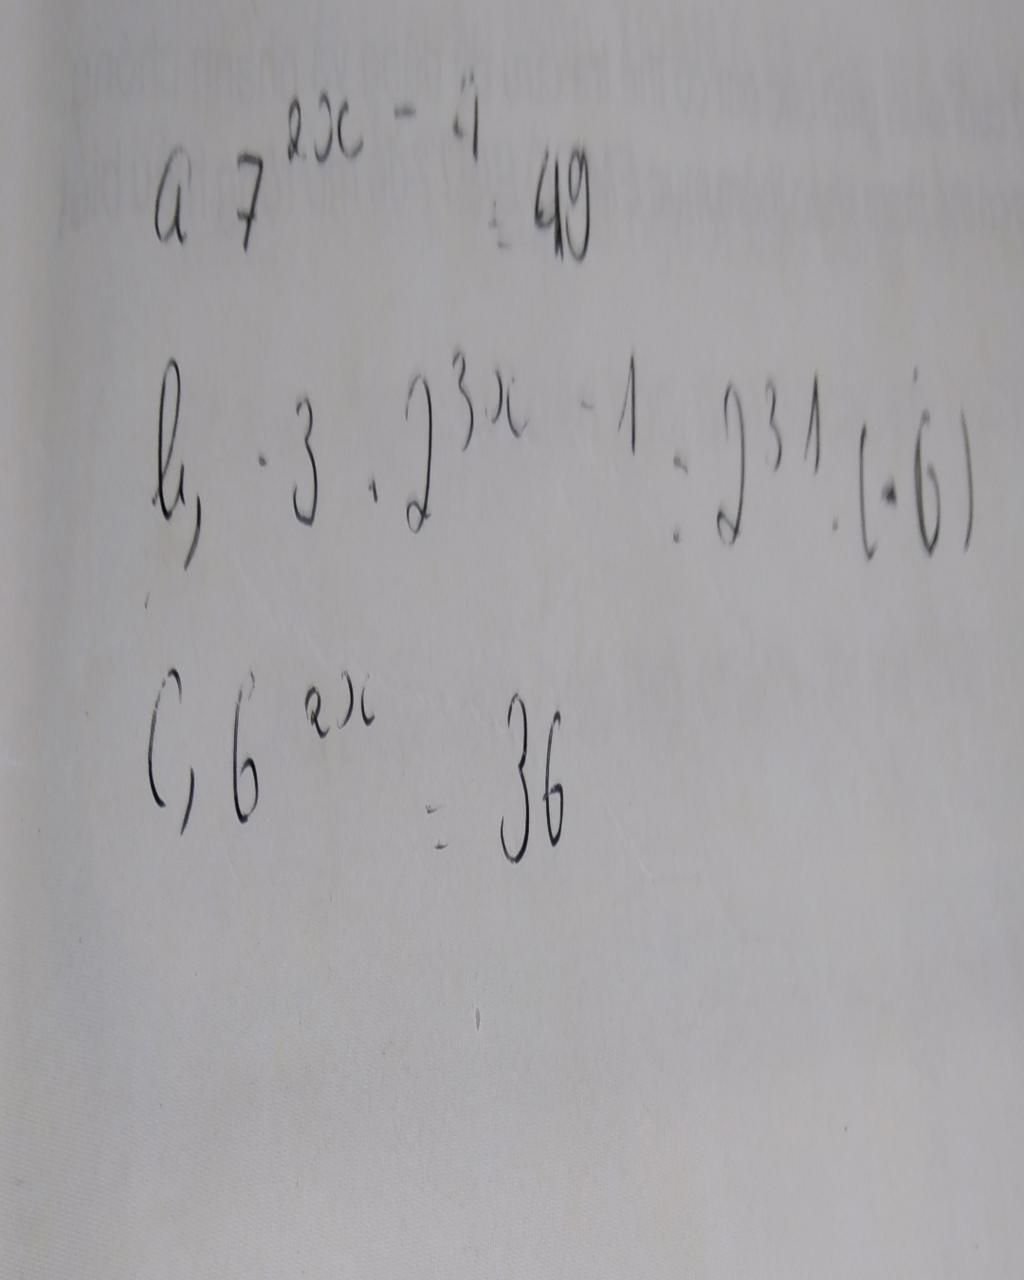 a 7^{2x - 4} = 49
b, -3 . 2^{3x - 1} = 2^{31} . (-6)
c, 6^{2x} = 36